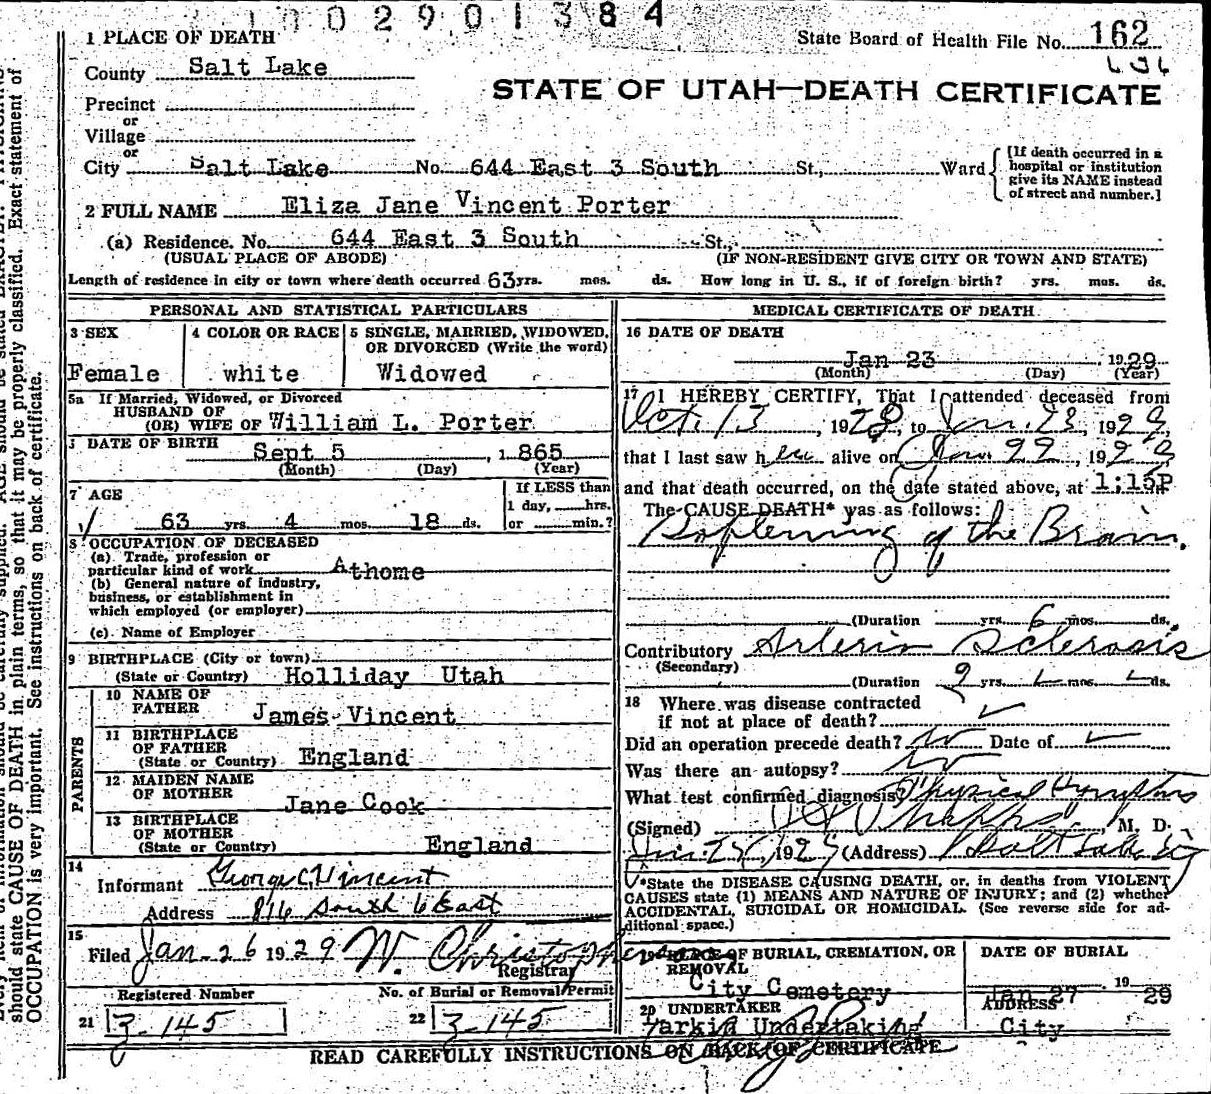 1002901384
1 PLACE OF DEATH
State Board of Health File No. 162
County Salt Lake
STATE OF UTAH—DEATH CERTIFICATE
Precinct
or
Village
or
City Salt Lake No. 644 East 3 South St., Ward
[If death occurred in a
hospital or institution
give its NAME instead
of street and number.]
2 FULL NAME Eliza Jane Vincent Porter
(a) Residence. No. 644 East 3 South St.,
(USUAL PLACE OF ABODE) (IF NON-RESIDENT GIVE CITY OR TOWN AND STATE)
Length of residence in city or town where death occurred 63 yrs. mos. ds. How long in U. S., if of foreign birth? yrs. mos. ds.
PERSONAL AND STATISTICAL PARTICULARS
3 SEX
Female
4 COLOR OR RACE
white
5 SINGLE, MARRIED, WIDOWED,
OR DIVORCED (Write the word)
Widowed
5a If Married, Widowed, or Divorced
HUSBAND OF
(OR) WIFE OF William L. Porter
DATE OF BIRTH
Sept 5, 1865
(Month) (Day) (Year)
7 AGE
63 yrs. 4 mos. 18 ds.
If LESS than
1 day, hrs.
or min.?
8 OCCUPATION OF DECEASED
(a) Trade, profession or
particular kind of work Athome
(b) General nature of industry,
business, or establishment in
which employed (or employer)
(c) Name of Employer
9 BIRTHPLACE (City or town)
(State or Country) Holliday Utah
PARENTS
10 NAME OF
FATHER James Vincent
11 BIRTHPLACE
OF FATHER
(State or Country) England
12 MAIDEN NAME
OF MOTHER Jane Cook
13 BIRTHPLACE
OF MOTHER
(State or Country) England
14
Informant George C. Vincent
Address 816 South 6 East
15
Filed Jan-26 1929 W. Christophersen
Registrar
Registered Number
21 3-145
No. of Burial or Removal Permit
22 3-145
MEDICAL CERTIFICATE OF DEATH
16 DATE OF DEATH
Jan 23 1929
(Month) (Day) (Year)
17 I HEREBY CERTIFY, That I attended deceased from
Oct. 13, 1928, to Jan. 23, 1929,
that I last saw her alive on Jan. 22, 1929
and that death occurred, on the date stated above, at 1:15P
The CAUSE DEATH* was as follows:
Softening of the Brain.
(Duration yrs. 6 mos. ds.
Contributory Arterio Sclerosis
(Secondary)
(Duration 2 yrs. mos. ds.
18 Where was disease contracted
if not at place of death?
Did an operation precede death? No Date of
Was there an autopsy? No
What test confirmed diagnosis? Physical Symptoms
(Signed) M. D.
192 (Address) Salt Lake City
*State the DISEASE CAUSING DEATH, or, in deaths from VIOLENT
CAUSES state (1) MEANS AND NATURE OF INJURY; and (2) whether
ACCIDENTAL, SUICIDAL OR HOMICIDAL. (See reverse side for ad-
ditional space.)
19 PLACE OF BURIAL, CREMATION, OR
REMOVAL
City Cemetery
DATE OF BURIAL
Jan 27 1929
20 UNDERTAKER
Larkin Undertaking
ADDRESS
City
READ CAREFULLY INSTRUCTIONS ON BACK OF CERTIFICATE
should state CAUSE OF DEATH in plain terms, so that it may be properly classified. Exact statement of
OCCUPATION is very important. See instructions on back of certificate.